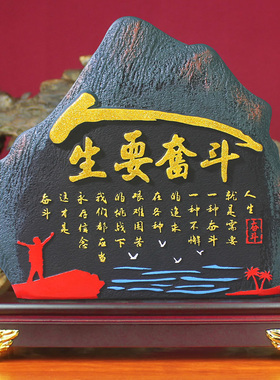 人
生要奋斗
人生
奋斗
就是需要
一种奋斗
一种不懈
的追求
在各种
艰难困苦
的挑战下
我们都在当
永存信念
这才是
奋斗